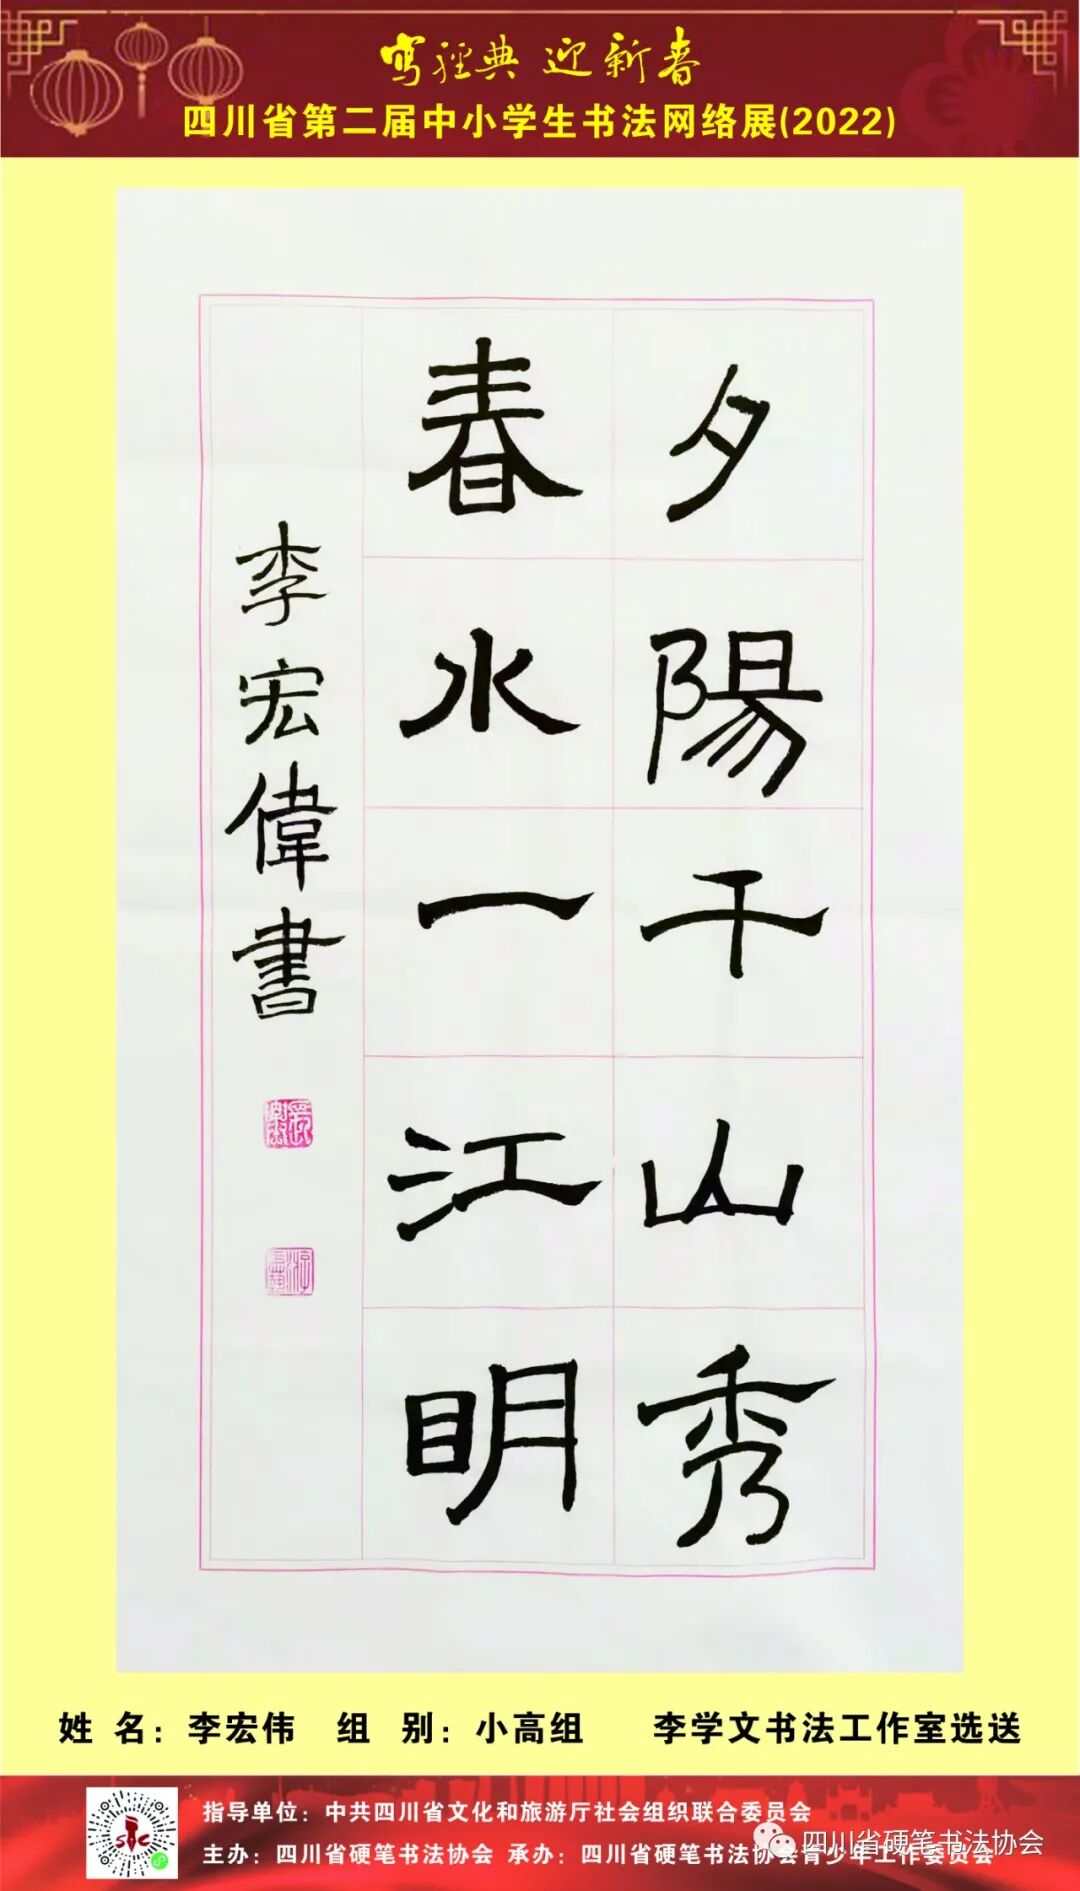 写经典 迎新春
四川省第二届中小学生书法网络展(2022)
夕陽千山秀
春水一江明
李宏偉書
姓 名：李宏伟 组 别：小高组 李学文书法工作室选送
指导单位：中共四川省文化和旅游厅社会组织联合委员会
主办：四川省硬笔书法协会 承办：四川省硬笔书法协会青少年工作委员会
四川省硬笔书法协会